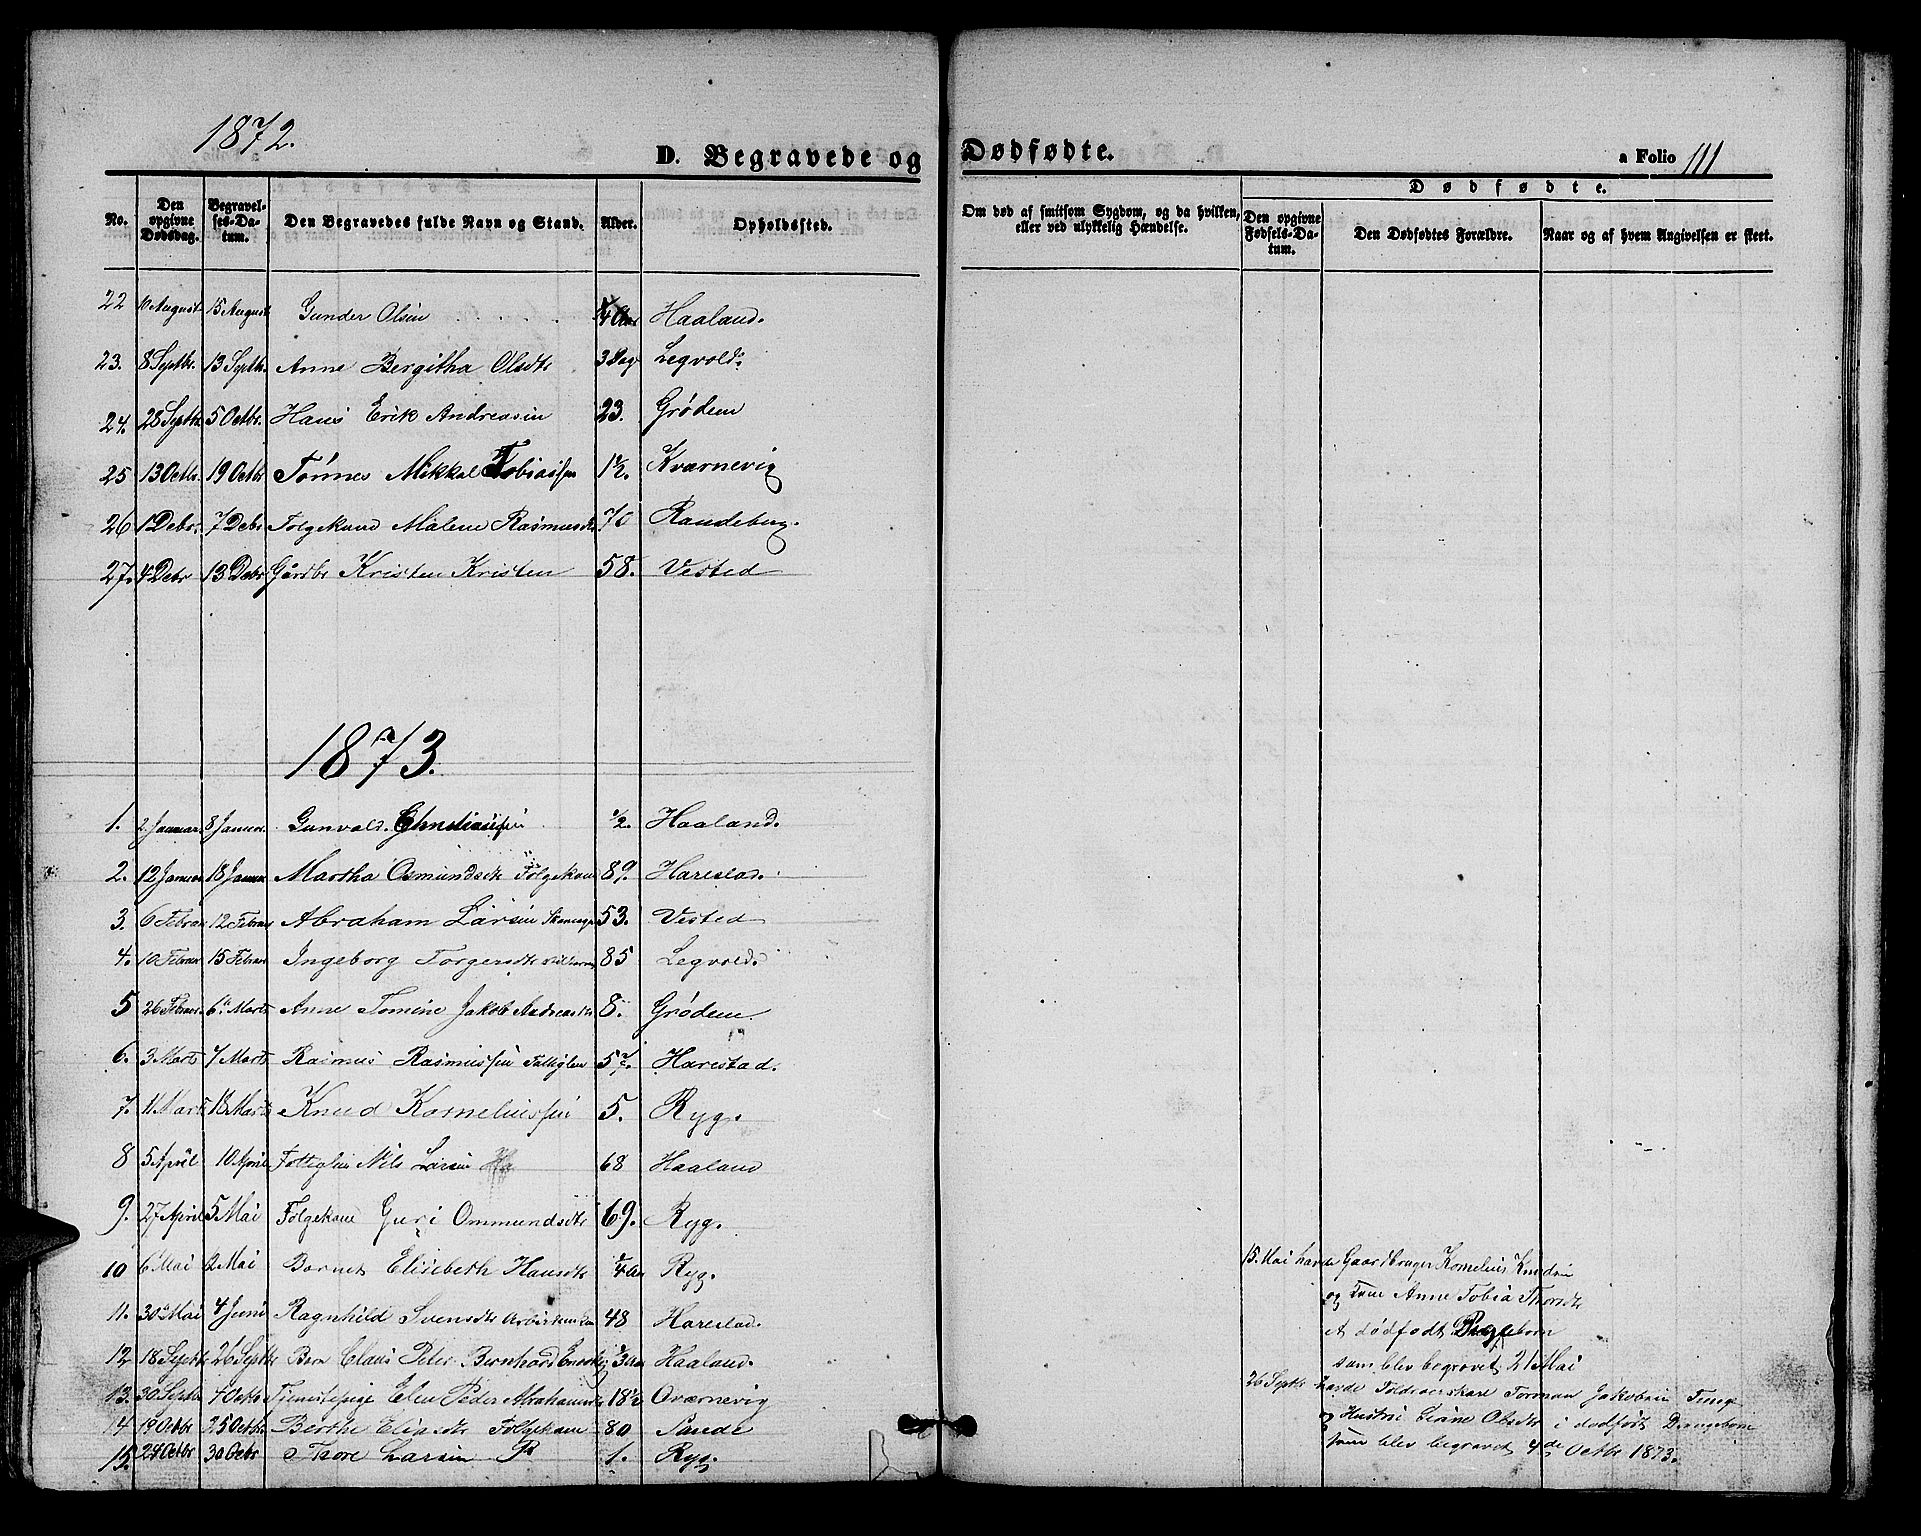 1872.
D. Begravede og Dødfødte.
a Folio 111
No. Den opgivne Dødsdag. Begravelses-Datum. Den Begravedes fulde Navn og Stand. Alder. Opholdssted. Om død af smitsom Sygdom, og da hvilken, eller ved ulykkelig Hændelse. Dødfødte. Den opgivne Fødsels-Datum. Den Dødfødtes Forældre. Naar og af hvem Angivelsen er skeet.
22 10 August 15 August Gunder Olsen Haaland.
23. 8 Septbr. 13 Septbr. Anne Bergitha Olsdtr 3 Dag Legvold.
24. 28 Septbr 5 Octbr. Hans Erik Andreasen 23. Grødem
25 13 Octbr. 19 Octbr Tønnes Mikkal Tobiassen 1½. Kvarnevig
26 1 Debr. 7 Debr Følgekone Malene Rasmusdtr 70 Randeberg.
27. 4 Debr 13 Debr Gårdbr Kristen Kristen 58. Vested
1873.
1. 2 Januar 8 Januar Gunvald Christiansen ½. Haaland.
2. 12 Januar 18 Januar Martha Osmundsdtr Følgekone 89. Harestad.
3. 6 Februar 12 Februar Abraham Larsen 53. Vested
4. 10 Februar 15 Februar Ingeborg Torgersdtr 85 Legvold.
5 26 Februar 6 Marts Anne Tomine Jakob Andreasdtr 8. Grødem
6. 3 Marts 7 Marts Rasmus Rasmussen Fattiglem 57. Harestad.
7. 11 Marts 18 Marts Knud Korneliussen 5. Ryg.
8 5 April 10 April Fattiglem Nils Larsen Ha 68 Haaland
9. 27 April 5 Mai Følgekone Guri Ommundsdtr 69. Ryg.
10 6 Mai 12 Mai Barnet Elisebeth Hansdtr ¼ Aar Ryg.
11. 30 Mai 4 Juni Ragnhild Svensdtr 48 Harestad.
12 18 Septbr 26 Septbr Barn Claus Peter Bernhard Haaland.
13. 30 Septbr 4 Octbr Tjenestepige Elen Peder Abrahamsdtr 18½ Qværnevig
14 19 Octbr 25 Octbr Berthe Eliasdtr Følgekone 80 Sande
15. 24 Octbr 30 Octbr Thore Larsen R 1. Ryg
15. Mai havde Gaardbruger Kornelius Knudsen
og Kone Anne Tobia Thorsdtr
et dødfødt Pigebarn
som blev begravet 21 Mai
26 Septbr havde Toldroerskarl Torman Jakobsen Tung
og Hustru Serine Olsdtr i dødfødt Drengebarn
som blev begravet 4de Octbr 1873.